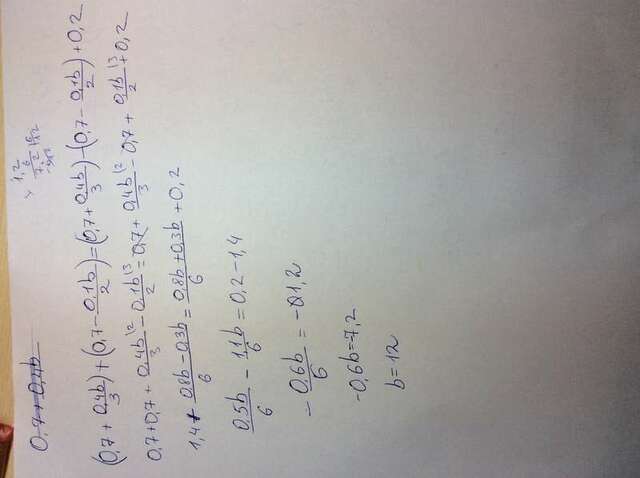 0,7+0,4b
× 1,2
6
7,2
(0,7 + 0,4b/3) + (0,7 - 0,1b/2) = (0,7 + 0,4b/3) - (0,7 - 0,1b/2) + 0,2
0,7+0,7 + 0,4b/3 \2 - 0,1b/2 \3 = 0,7 + 0,4b/3 \2 - 0,7 + 0,1b/2 \3 + 0,2
1,4 + 0,8b - 0,3b/6 = 0,8b + 0,3b/6 + 0,2
0,5b/6 - 1,1b/6 = 0,2 - 1,4
- 0,6b/6 = -1,2
-0,6b=7,2
b=12